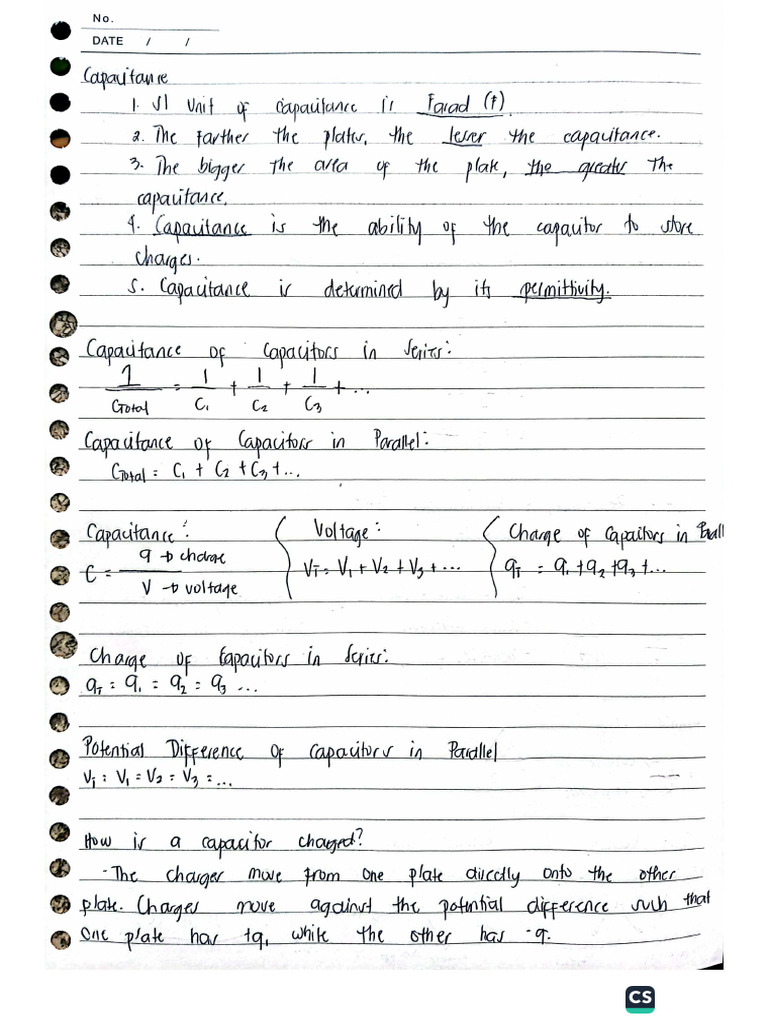 No.
DATE / /
Capacitance
1. SI Unit of capacitance is Farad (F).
2. The farther the plates, the lesser the capacitance.
3. The bigger the area of the plate, the greater the
capacitance.
4. Capacitance is the ability of the capacitor to store
charges.
5. Capacitance is determined by its permittivity.
Capacitance of Capacitors in Series:
1/CTotal = 1/C1 + 1/C2 + 1/C3 + ...
Capacitance of Capacitors in Parallel:
CTotal = C1 + C2 + C3 + ...
Capacitance:
C = q → charge / V → voltage
Voltage:
VT = V1 + V2 + V3 + ...
Charge of Capacitors in Parall
qT = q1 + q2 + q3 + ...
Charge of Capacitors in Series:
qT = q1 = q2 = q3 ...
Potential Difference of Capacitors in Parallel
VT = V1 = V2 = V3 = ...
How is a capacitor charged?
- The charges move from one plate directly onto the other
plate. Charges move against the potential difference such that
one plate has +q, while the other has -q.
CS